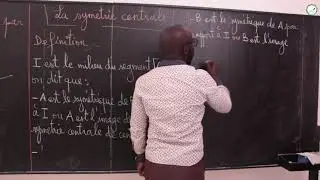 par
La symetrie centrale
Definition
I est le milieu du segment [
on dit que :
- A est le symétrique de
à I ou A est l'image d
symetrie centrale de cen
-
- B est le symétrique de A par
rapport à I ou B est l'image